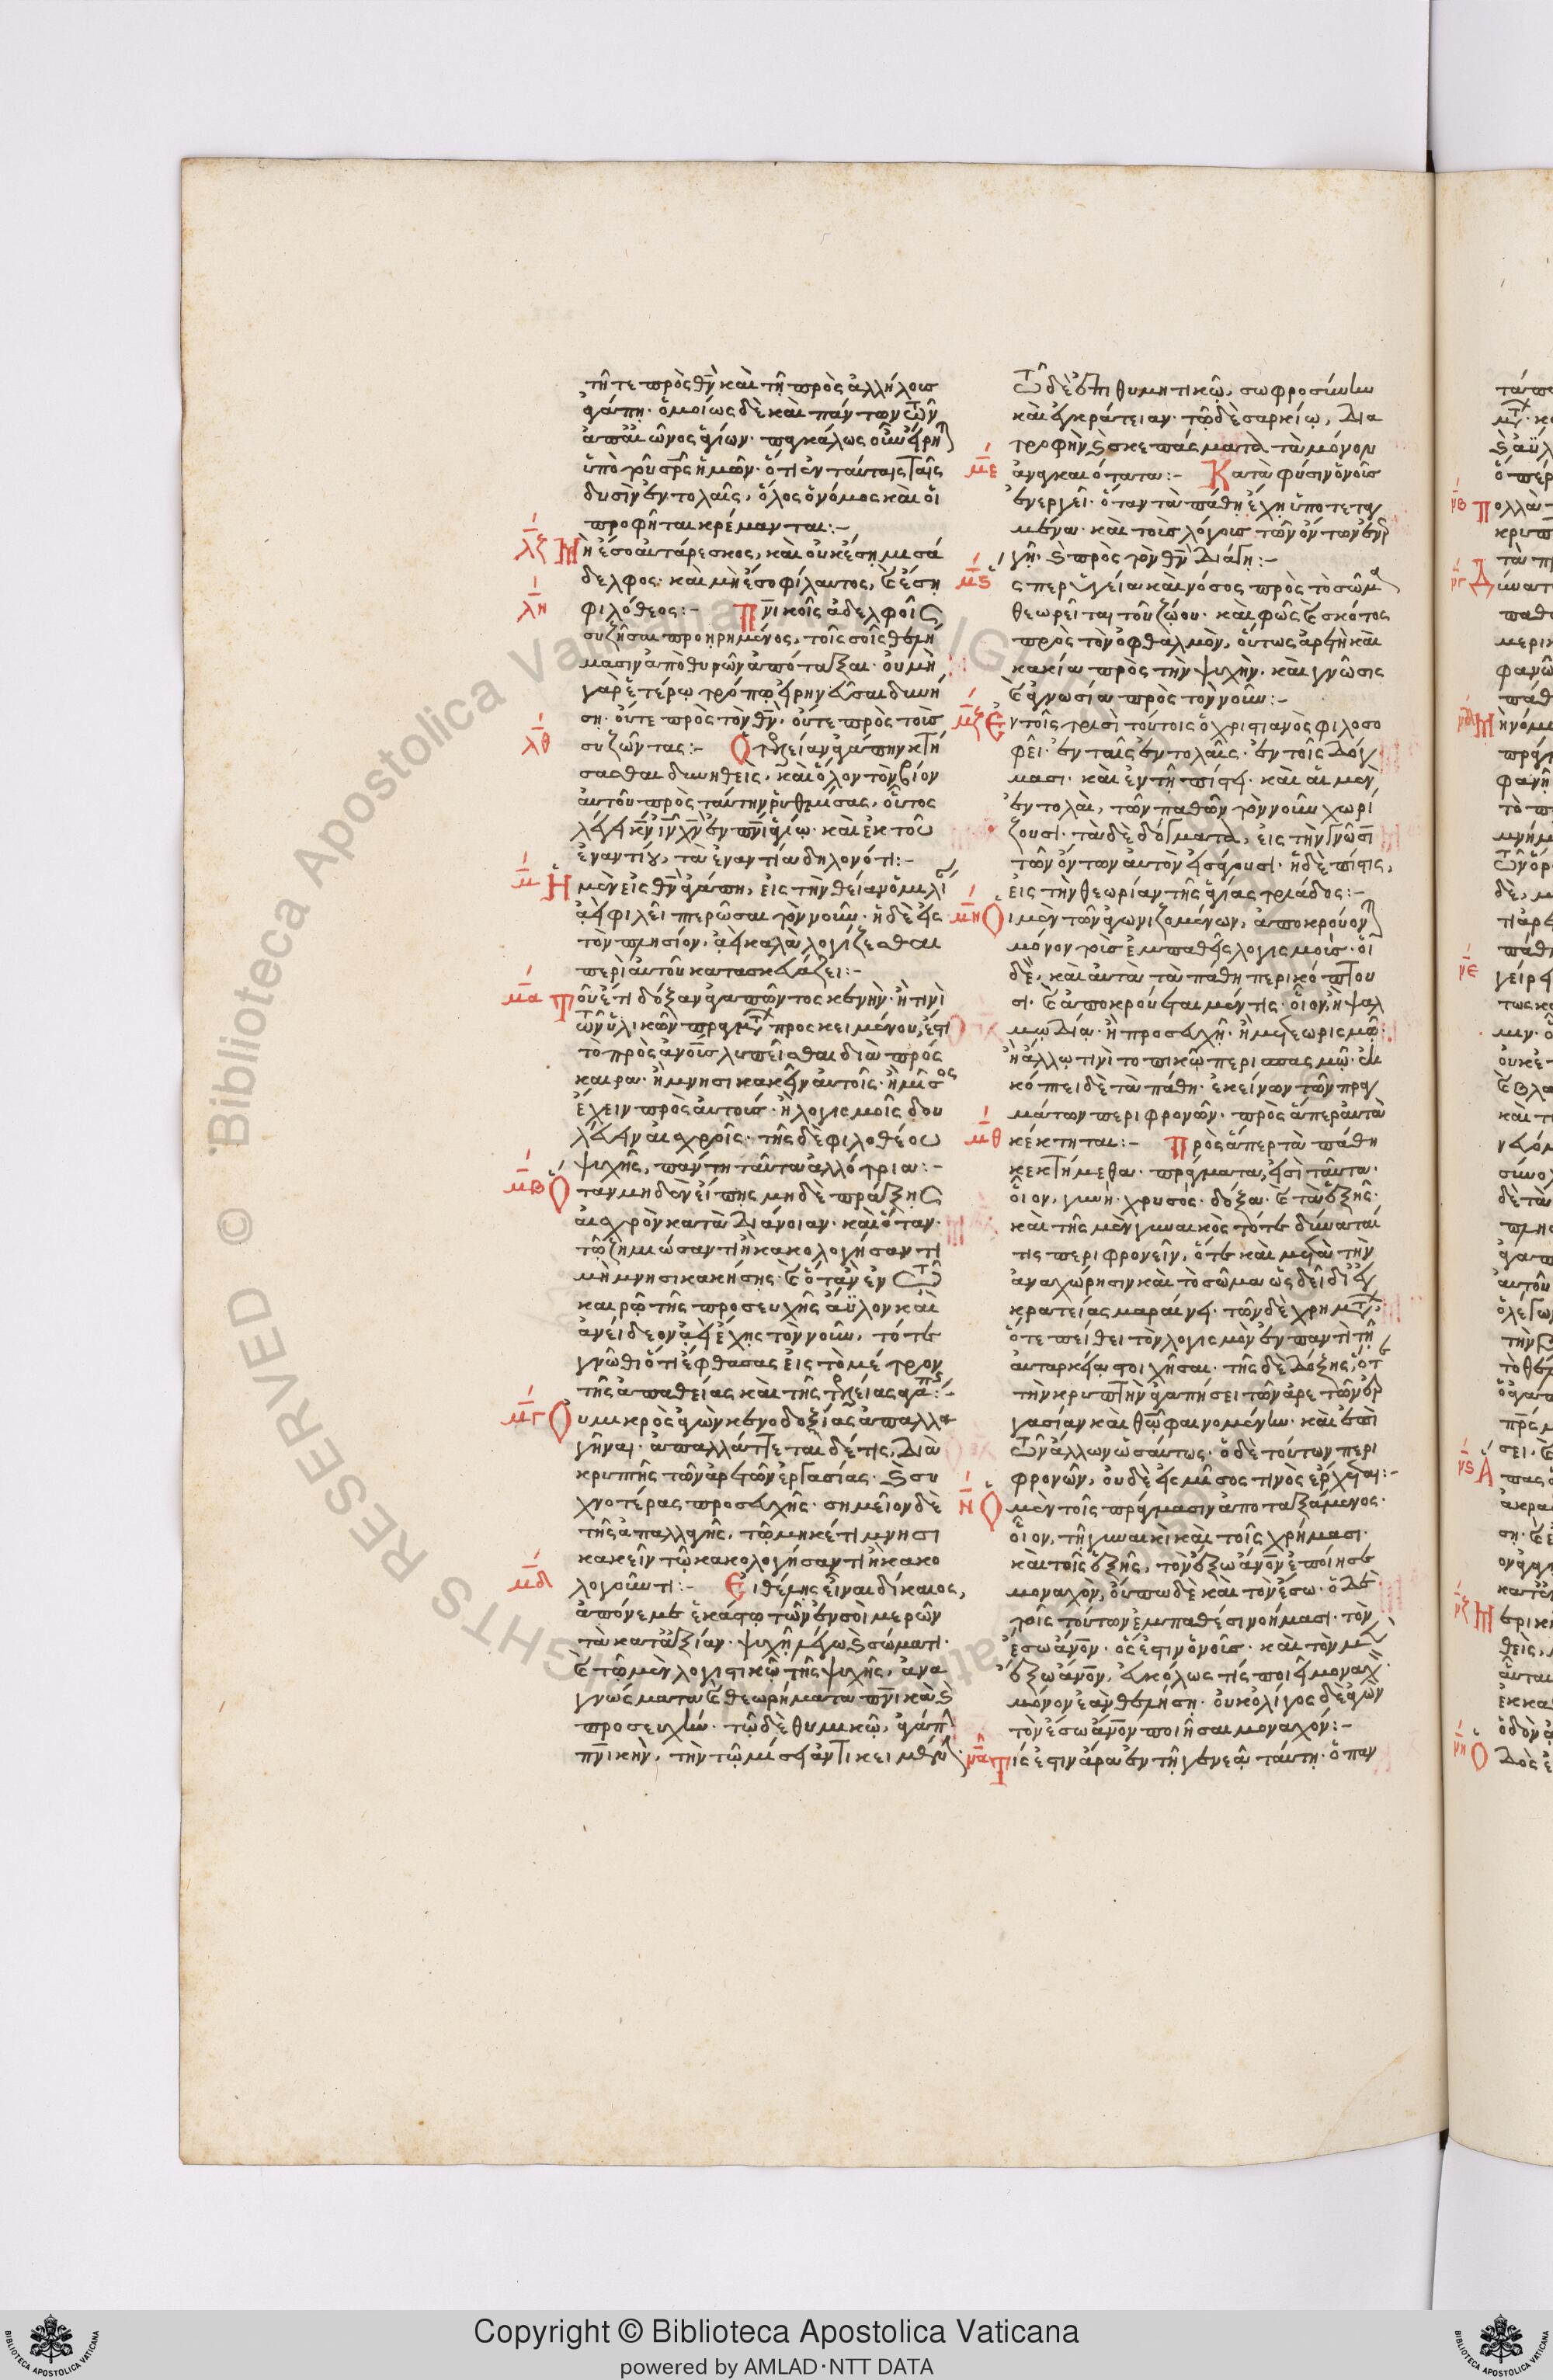 τῆ τε πρὸς θν̅ καὶ τῆ πρὸς ἀλλήλους
ἀγάπη· ὁμοίως δὲ καὶ πάντων τῶν
ἀπαἰῶνος ἁγίων· παγκάλως οὖν εἴρη
ὑπὸ τοῦ σρ̅ς ἡμῶν· ὅτι ἐν ταύταις ταῖς
δυσὶν ἐντολαῖς, ὅλος ὁ νόμος καὶ οἱ
προφῆται κρέμανται:-
λζ Μὴ ἔσο αὐτάρεσκος, καὶ οὐκ ἔση μισά
δελφος· καὶ μὴ ἔσο φίλαυτος, καὶ ἔση
λη φιλόθεος:- Πν̅ικοῖς ἀδελφοῖς
συζῆσαι προηρημένος, τοῖς σοῖς θελή
μασιν ἀπὸ θυρῶν ἀπόταξαι· οὐ μὴ
γὰρ ἑτέρω τρόπω εἰρηνεῦσαι δυνή
ση· οὔτε πρὸς τὸν θν̅, οὔτε πρὸς τοὺς
λθ συζῶντας:- Ὁ τελείαν ἀγάπην κτή
σασθαι δυνηθεὶς, καὶ ὅλον τὸν βίον
αὐτοῦ πρὸς ταύτην ῥυθμίσας, οὗτος
λέγει κν̅ ιν̅ χν̅ ἐν πν̅ι ἁγίω· καὶ ἐκ τοῦ
ἐναντίου, τὰ ἐναντία δηλονότι:-
μ Ἡ μὲν εἰς θν̅ ἀγάπη, εἰς τὴν θείαν ὁμιλί
ἀεὶ φιλεῖ πτερῶσαι τὸν νοῦν· ἡ δὲ εἰς
τὸν πλησίον, ἀεὶ καλὰ λογίζεσθαι
περὶ αὐτοῦ κατασκευάζει:-
μα Τοῦ ἔτι δόξαν ἀγαπῶντος κενὴν· ἢ τινὶ
τῶν ὑλικῶν πραγμτ προσκειμένου, ἐστὶ
τὸ πρὸς ἀνο̅υς λυπεῖσθαι διὰ πρός
καιρα· ἢ μνησικακεῖν αὐτοῖς· ἢ μῖσος
ἔχειν πρὸς αὐτοὺς· ἢ λογισμοῖς δου
λεύειν αἰσχροῖς· τῆς δὲ φιλοθέου
ψυχῆς, πάντη ταῦτα ἀλλότρια:-
μβ Ὅταν μηδὲν εἴπης μηδὲ πράξης
αἰσχρὸν κατὰ διάνοιαν· καὶ ὅταν
τῶ ζημιώσαντι ἢ κακολογήσαντι
μὴ μνησικακήσης· καὶ ὅταν ἐν τῶ
καιρῶ τῆς προσευχῆς ἄϋλον καὶ
ἀνείδεον ἀεὶ ἔχης τὸν νοῦν, τότε
γνῶθι ὅτι ἔφθασας εἰς τὸ μέτρον
τῆς ἀπαθείας καὶ τῆς τελείας ἀγάπης:-
μγ Οὐ μικρὸς ἀγὼν κενοδοξίας ἀπαλλα
γῆναι· ἀπαλλάττεται δέ τις, διὰ
κρυπτῆς τῶν ἀρετῶν ἐργασίας· καὶ συ
χνοτέρας προσευχῆς· σημεῖον δὲ
τῆς ἀπαλλαγῆς, τῶ μηκέτι μνησι
κακεῖν τῶ κακολογήσαντι ἢ κακο
μδ λογοῦντι:- Εἰ θέλης εἶναι δίκαιος,
ἀπόνεμε ἑκάστω τῶν ἐν σοὶ μερῶν
τὰ κατἀξίαν· ψυχῆ λέγω καὶ σώματι·
καὶ τῶ μὲν λογιστικῶ τῆς ψυχῆς, ἀνα
γνώσματα καὶ θεωρήματα πν̅ικὰ καὶ
προσευχήν· τῶ δὲ θυμικῶ, ἀγάπ
πν̅ικὴν, τὴν τῶ μίσει ἀντικειμένην·
Τῶ δὲ ἐπιθυμητικῶ, σωφροσύνην
καὶ ἐγκράτειαν· τῶ δὲ σαρκίω, δια
τροφὴν καὶ σκεπάσματα τὰ μόνον
με ἀναγκαιότατα:- Κατὰ φύσιν ὁ νοῦς
ἐνεργεῖ· ὅταν τὰ πάθη ἔχη ὑποτεταγ
μένα· καὶ τοὺς λόγους τῶν ὄντων θεωρ
μς γῆ· καὶ πρὸς τὸν θν̅ διάγη:-
ὥσπερ ὑγεία καὶ νόσος πρὸς τὸ σῶμα
θεωρεῖται τοῦ ζώου· καὶ φῶς καὶ σκότος
πρὸς τὸν ὀφθαλμὸν, οὕτως ἀρετὴ καὶ
κακία πρὸς τὴν ψυχὴν, καὶ γνῶσις
καὶ ἀγνωσία πρὸς τὸν νοῦν:-
μζ Ἐν τοῖς τρισὶ τούτοις ὁ χριστιανὸς φιλοσο
φεῖ· ἐν ταῖς ἐντολαῖς· ἐν τοῖς δόγ
μασι· καὶ ἐν τῆ πίστει· καὶ αἱ μὲν
ἐντολαὶ, τῶν παθῶν τὸν νοῦν χωρί
ζουσι· τὰ δὲ δόγματα, εἰς τὴν γνῶσιν
τῶν ὄντων αὐτὸν εἰσάγουσι· ἡ δὲ πίστις,
εἰς τὴν θεωρίαν τῆς ἁγίας τριάδος:-
μη Οἱ μὲν τῶν ἀγωνιζομένων, ἀποκρούον
μόνον τοὺς ἐμπαθεῖς λογισμοὺς· οἱ
δὲ, καὶ αὐτὰ τὰ πάθη περικόπτου
σι· καὶ ἀποκρούεται μέν τις, οἷον, ἢ ψαλ
μωδία· ἢ προσευχῆ· ἢ μετεωρισμῶ·
ἢ ἄλλω τινὶ τοπικῶ περισπασμῶ· ἐκ
κόπτει δὲ τὰ πάθη· ἐκείνων τῶν πραγ
μάτων περιφρονῶν· πρὸς ἅπερ αὐτὰ
μθ κέκτηται:- Πρὸς ἅπερ τὰ πάθη
κεκτήμεθα· πράγματα, εἰσὶ ταῦτα·
οἷον, γυνὴ· χρυσός· δόξα· καὶ τὰ ἑξῆς·
καὶ τῆς μὲν γυναικὸς τότε δύναται
τις περιφρονεῖν, ὅτε καὶ μετὰ τὴν
ἀναχώρησιν καὶ τὸ σῶμα ὡς δεῖ δι᾽ ἐγ
κρατείας μαραίνει· τῶν δὲ χρημτ·
ὅτε πείθει τὸν λογισμὸν ἐν παντὶ τῆ
αὐταρκεία στοιχῆσαι· τῆς δὲ δόξης, ὅτε
τὴν κρυπτὴν ἀγαπήσει τῶν ἀρετῶν ἐρ
γασίαν καὶ θω̅ φαινομένην· καὶ ἐπὶ
τῶν ἄλλων ὡσαύτως· ὁ δὲ τούτων περι
φρονῶν, οὐδὲ εἰς μῖσος τινὸς ἔρχεται:-
ν Ὁ μὲν τοῖς πράγμασιν ἀποταξάμενος·
οἷον, τῆ γυναικὶ καὶ τοῖς χρήμασι·
καὶ τοῖς ἑξῆς, τὸν ἔξω ἄνο̅ν ἐποίησε
μοναχὸν, οὔπω δὲ καὶ τὸν ἔσω· ὁ δὲ
τοῖς τούτων ἐμπαθέσι νοήμασι· τὸν
ἔσω ἄνο̅ν· ὅς ἐστιν ὁ νοῦς· καὶ τὸν μὲν
ἔξω ἄνο̅ν, εὐκόλως τίς ποιεῖ μοναχ
μόνον ἐὰν θελήση· οὐκ ὀλίγος δὲ ἀγὼν
τὸν ἔσω ἄνο̅ν ποιῆσαι μοναχόν:-
να Τίς ἐστιν ἄρα ἐν τῆ γενεᾶ ταύτη· ὁ παν
Copyright © Biblioteca Apostolica Vaticana
powered by AMLAD·NTT DATA